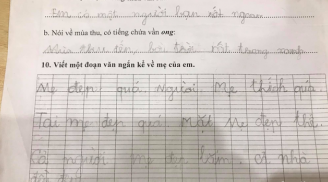 Em có một người bạn rất ngoan
b. Nói về mùa thu, có tiếng chứa vần ong:
Mùa thu đến, bầu trời rất trong xanh
10. Viết một đoạn văn ngắn kể về mẹ của em.
Mẹ đẹp quá. Người. Mẹ thích quá.
Tai mẹ đẹp quá. Mắt Mẹ đẹp thế.
Cả người mẹ đẹp lắm. cả nhà